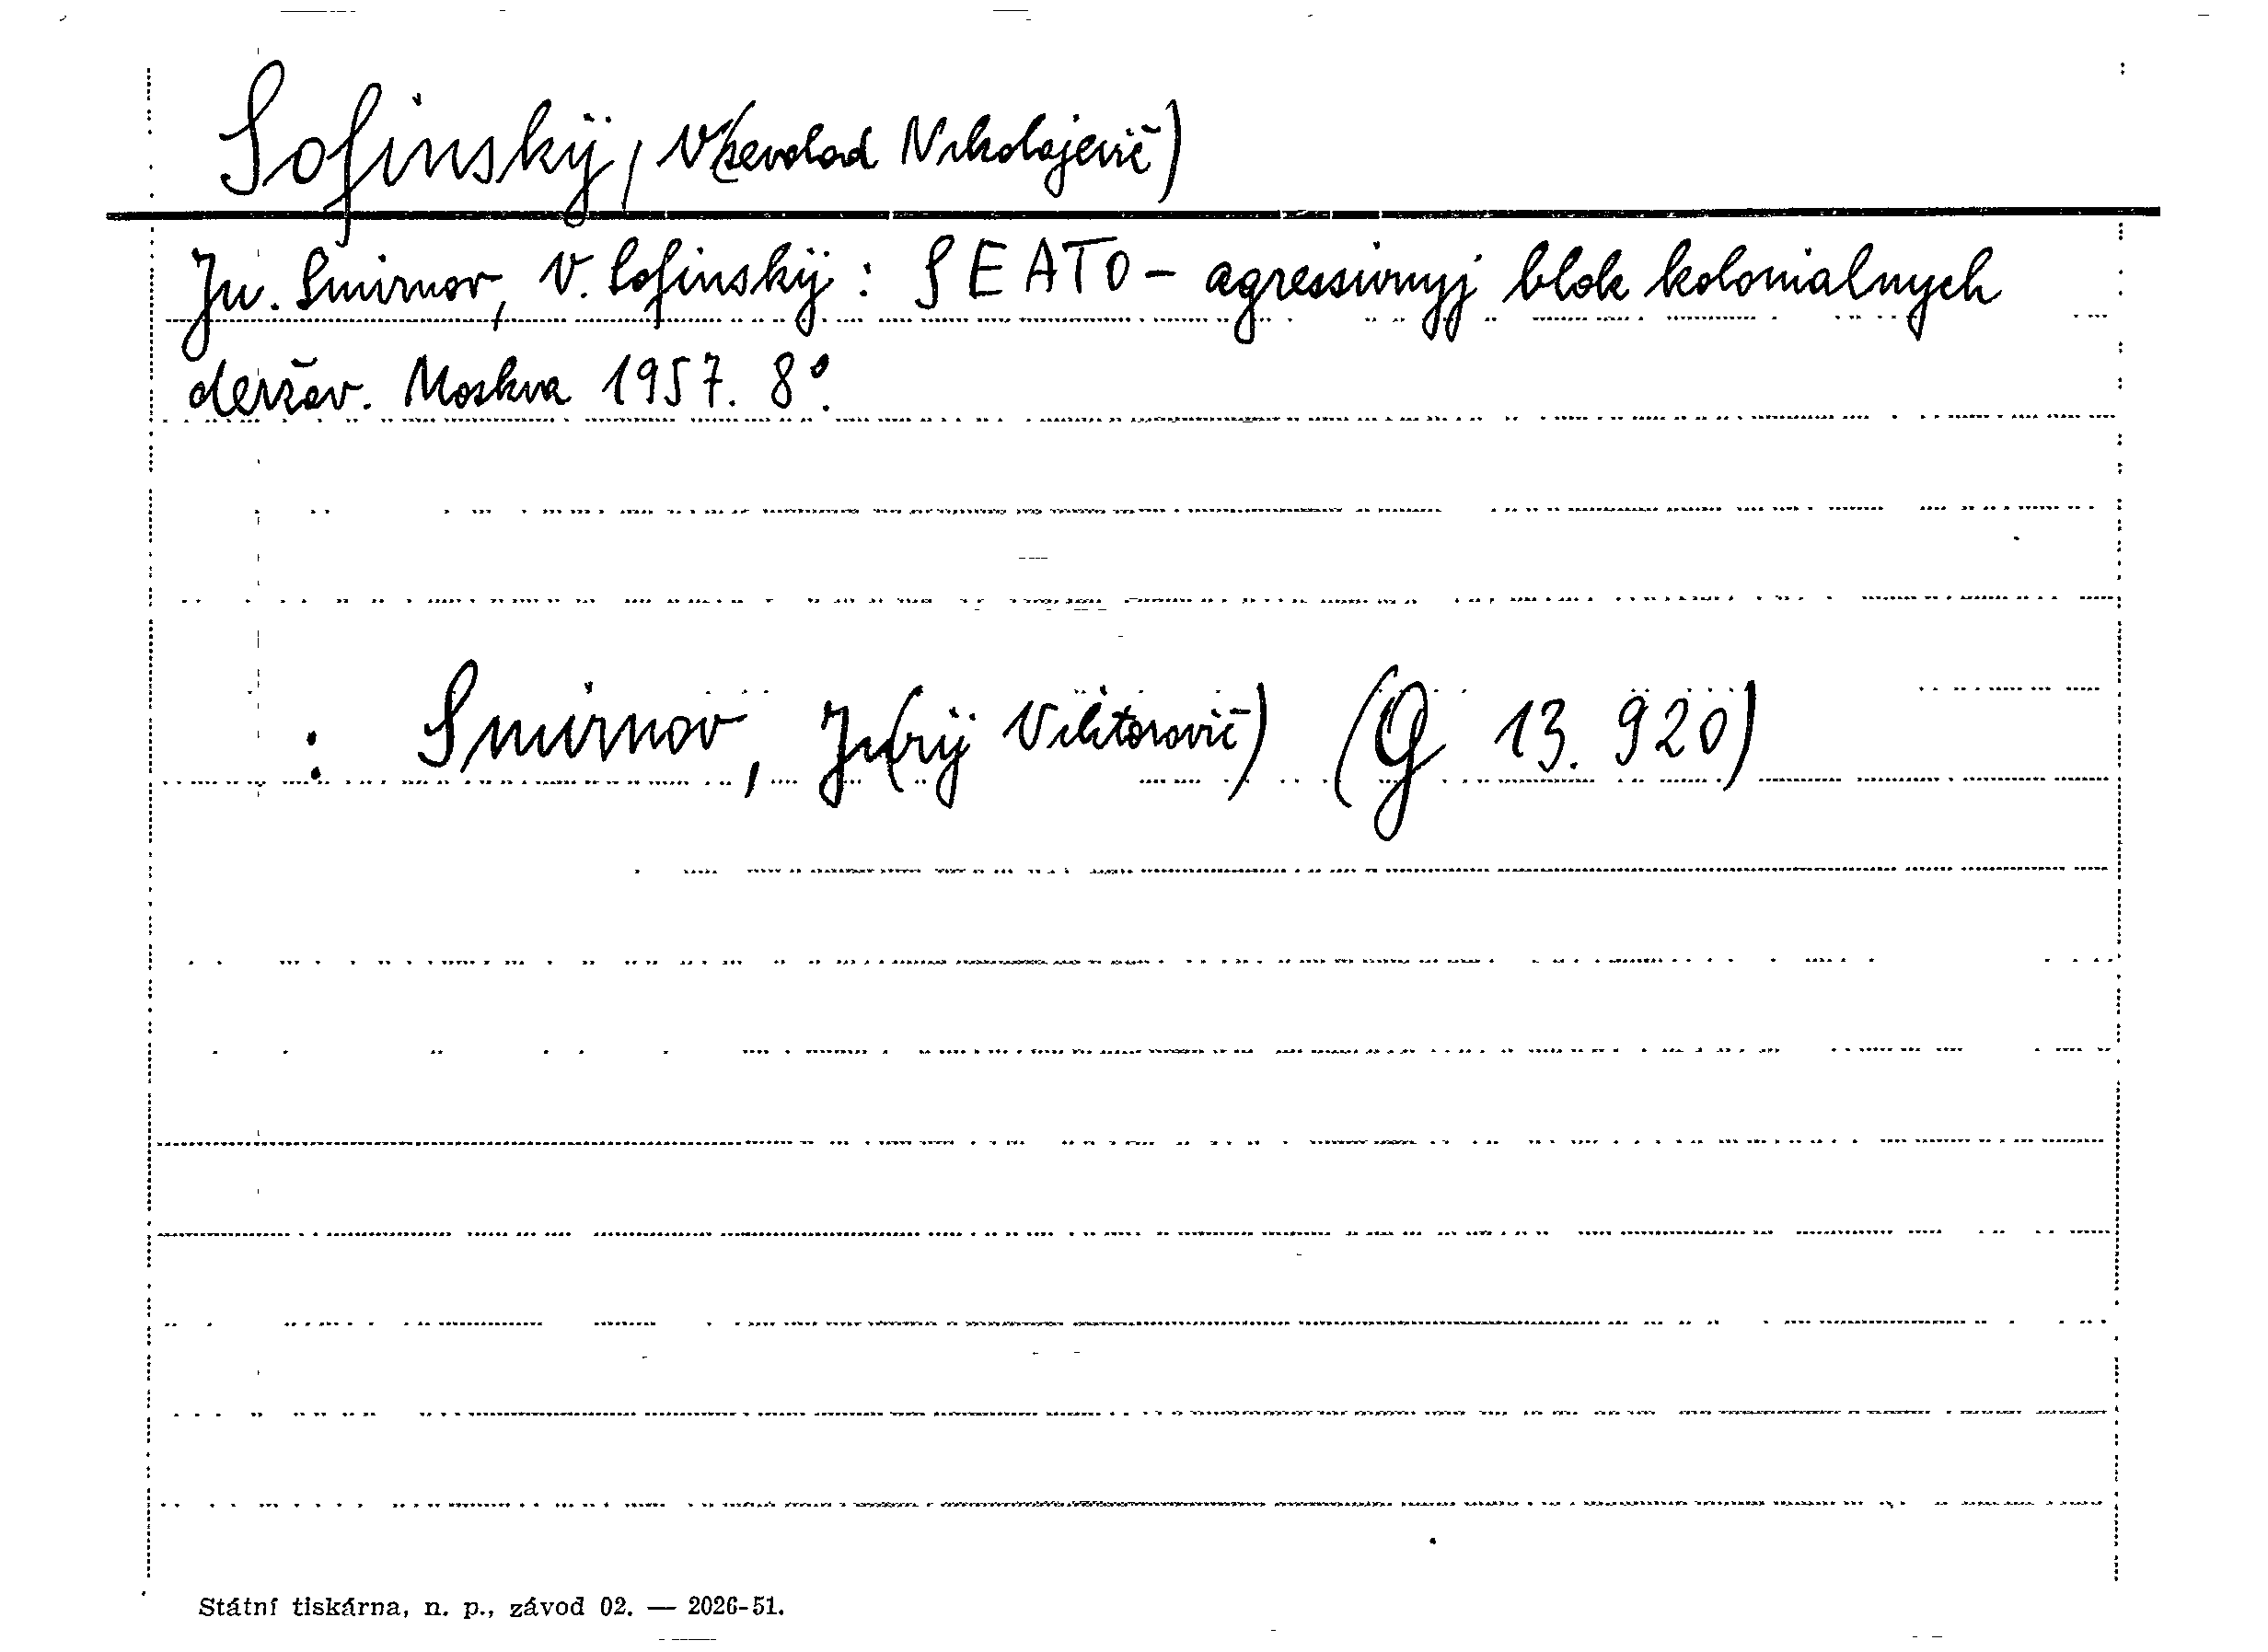 Sofinskij, V(sevolod Nikolajevič)
Ju. Smirnov, V. Sofinskij: SEATO - agressivnyj blok kolonialnych
deržav. Moskva 1957. 8°.
: Smirnov, Ju(rij Viktorovič) (G 13.920)
Státní tiskárna, n. p., závod 02. — 2026-51.